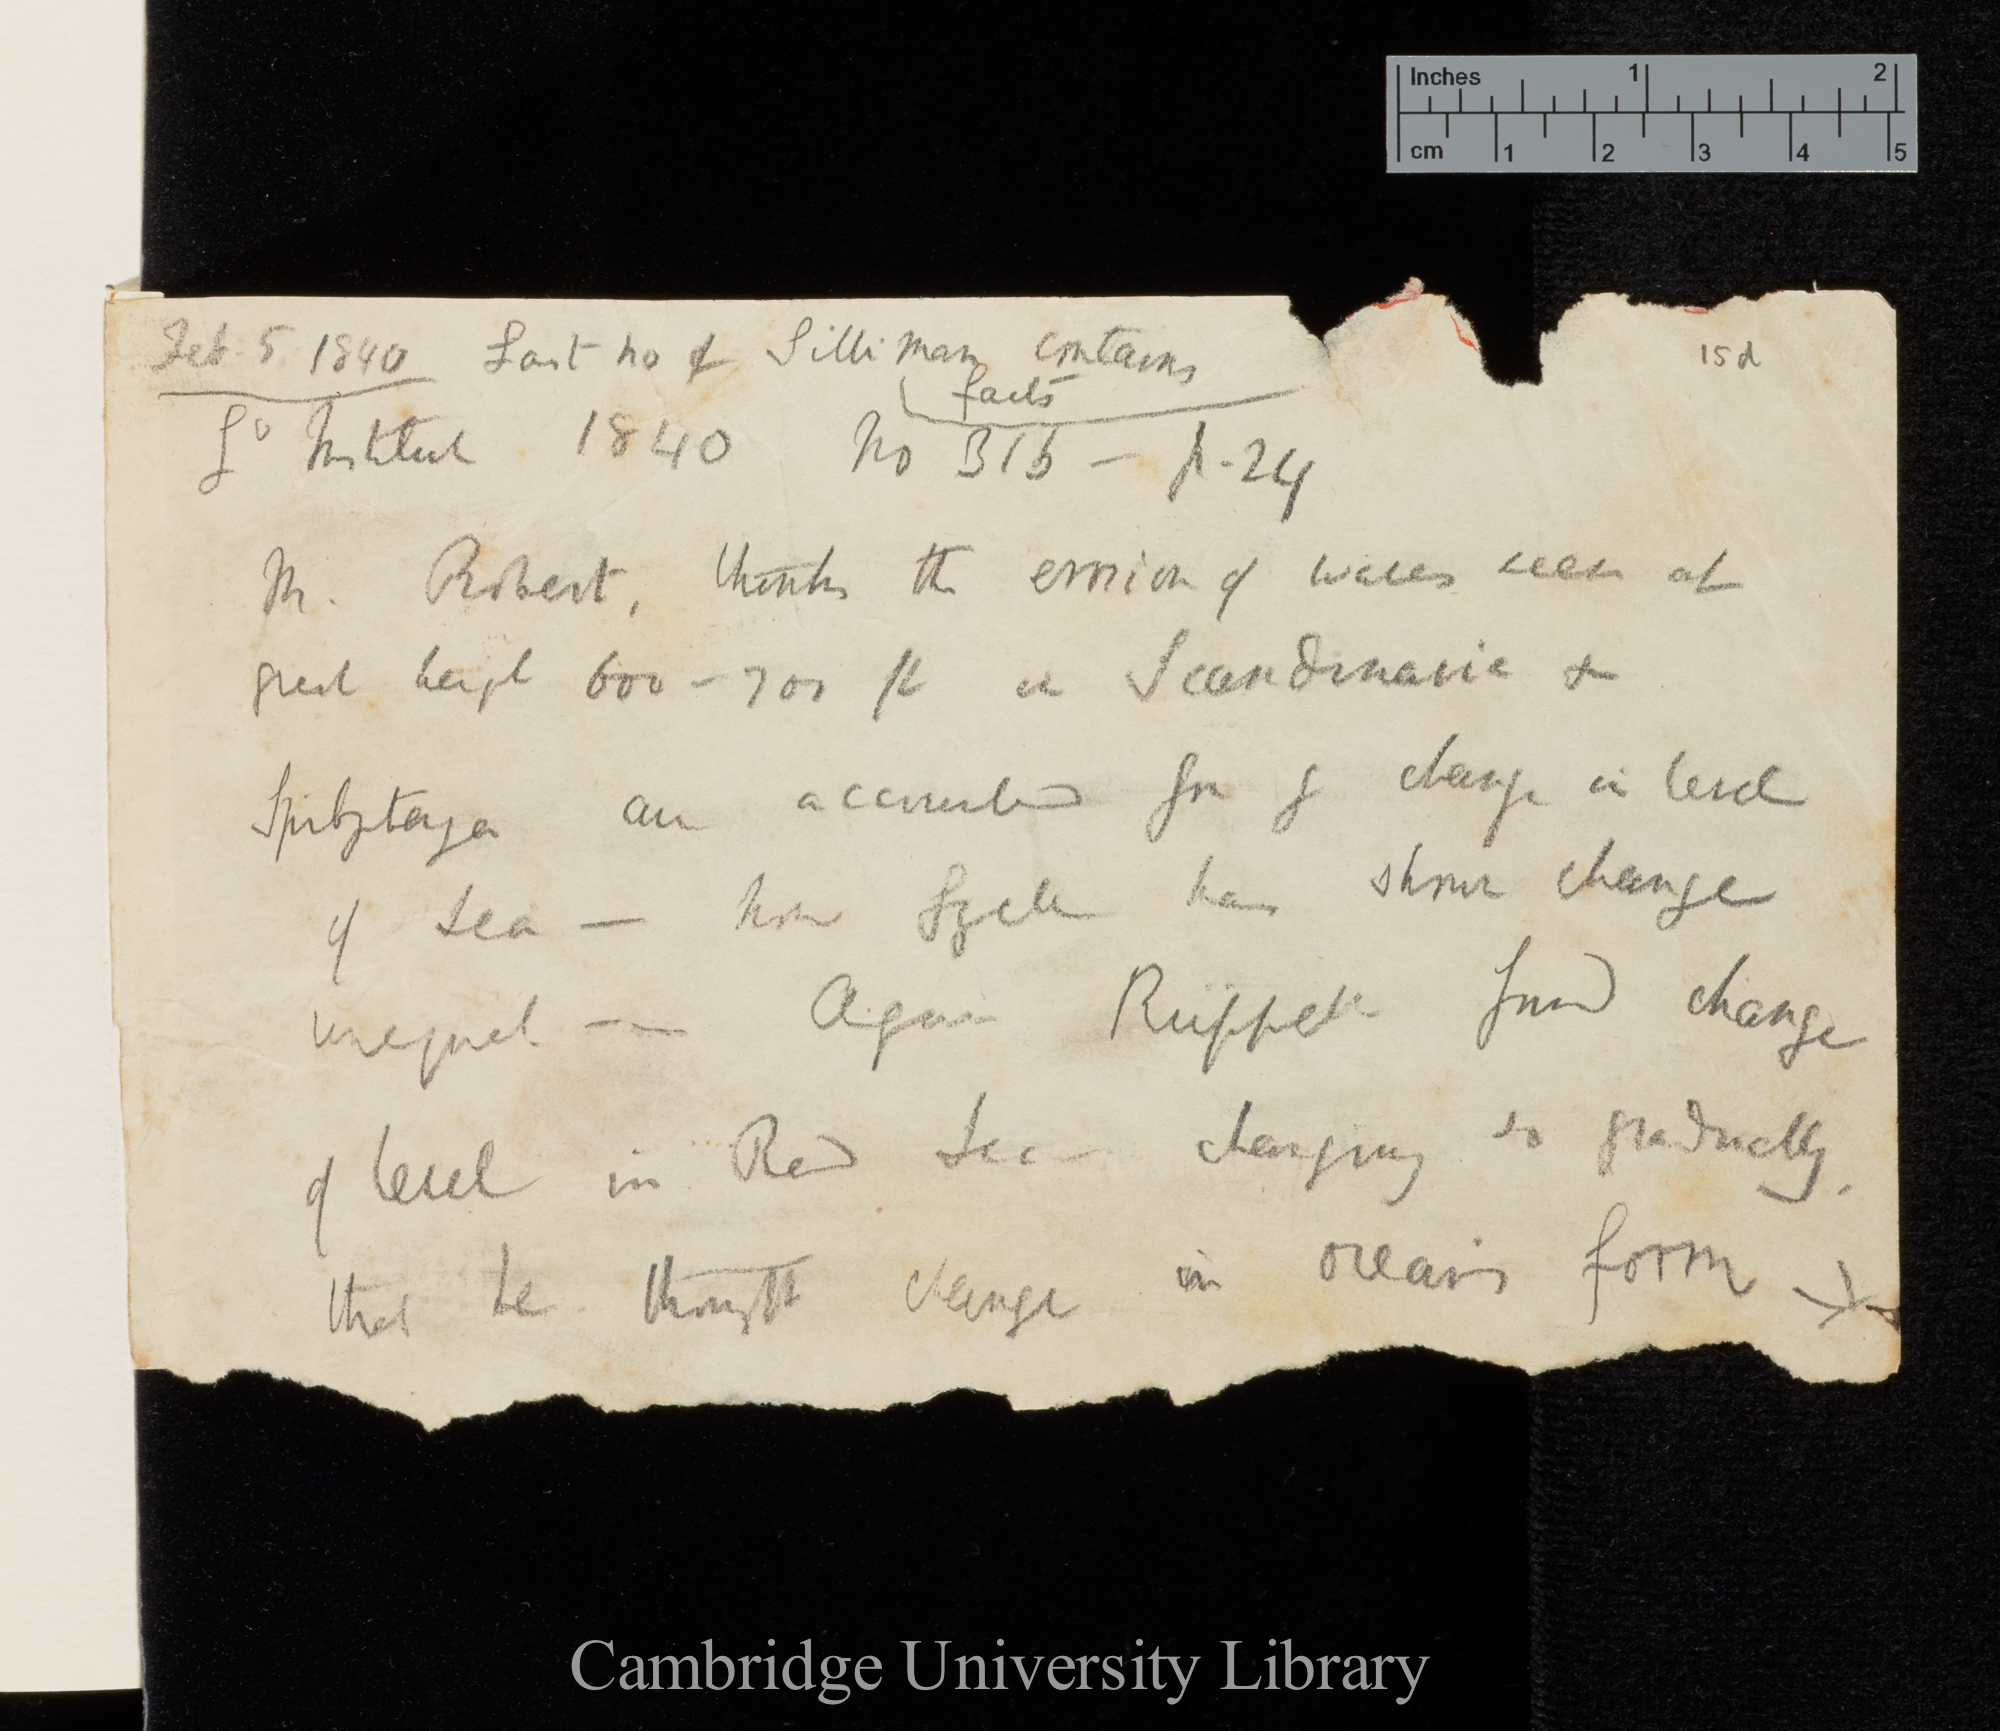 Inches 1 2
cm 1 2 3 4 5
15d
Feb. 5 1840 Last no of Silliman contains
facts
L' Institut 1840 No 316 — p. 24
M. Robert, thinks the erosion of waves seen at
great height 600–700 ft in Scandinavia &
Spitzbergen are accounted for by change in level
of sea — now Lyell has shown change
unequal — Again Rüppell found change
of level in Red Sea — changing so gradually.
that he thought change in oceans form →
Cambridge University Library